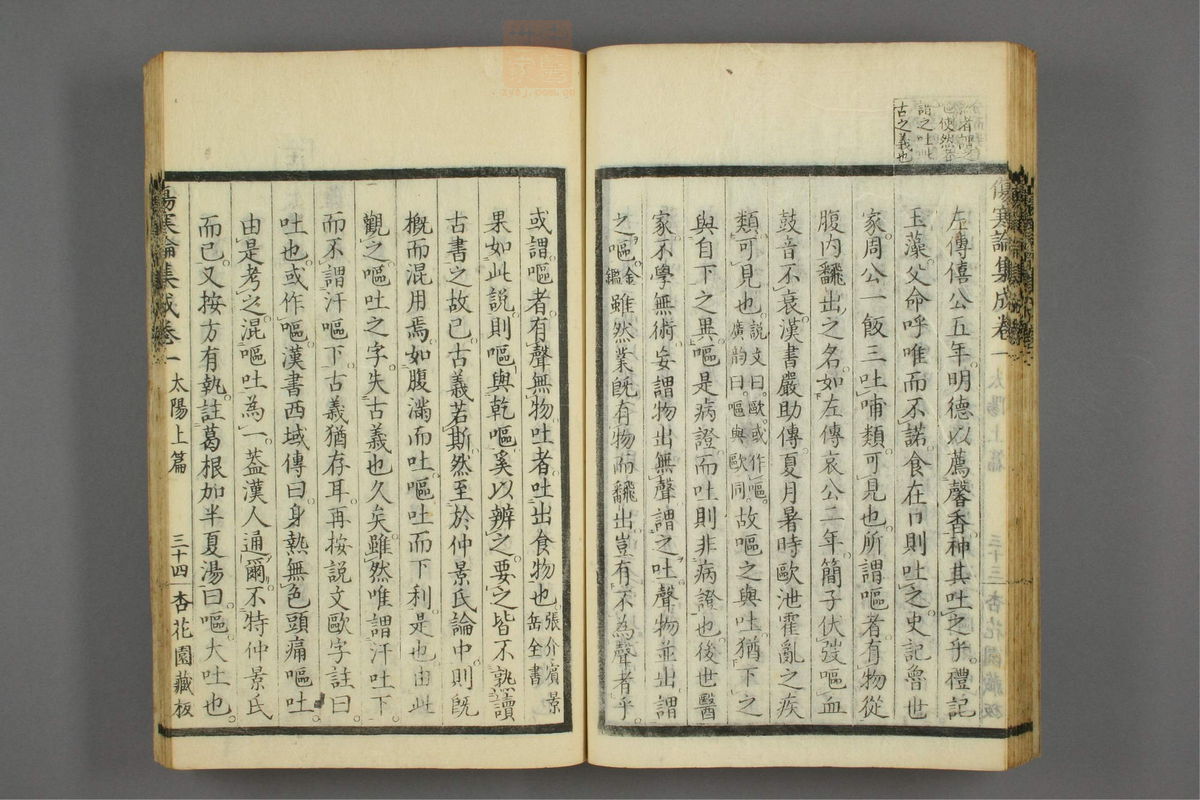 古之義也
傷寒論集成卷一
左傳僖公五年。明德以薦馨香。神其吐之乎。禮記
玉藻。父命呼唯而不諾。食在口則吐之。史記魯世
家。周公一飯三吐哺類。可見也。所謂嘔者。有物從
腹內飜出之名。如左傳哀公二年。簡子伏弢嘔血
鼓音不衰。漢書嚴助傳。夏月暑時歐泄霍亂之疾
類。可見也。說文曰。歐。或作嘔。廣韵曰。嘔與歐同。故嘔之與吐。猶下之
與自下之異。嘔是病證。而吐則非病證也。後世醫
家。不學無術。妄謂物出無聲。謂之吐。聲物並出。謂
之嘔。金鑑雖然業旣有物而飜出。豈有不為聲者乎。
或謂。嘔者。有聲無物。吐者。吐出食物也。張介賓景岳全書
果如此說。則嘔與乾嘔。奚以辨之。要之皆不熟讀
古書之故已。古義若斯。然至於仲景氏論中。則旣
槪而混用焉。如腹滿而吐。嘔吐而下利。是也。由此
觀之。嘔吐之字。失古義也久矣。雖然唯謂汗吐下
而不謂汗嘔下。古義猶存耳。再按說文歐字註曰。
吐也。或作嘔。漢書西域傳曰。身熱無色。頭痛嘔吐
由是考之。混嘔吐為一。蓋漢人通爾。不特仲景氏
而已。又按方有執。註葛根加半夏湯曰。嘔。大吐也。
傷寒論集成卷一 太陽上篇 三十四 杏花園藏板